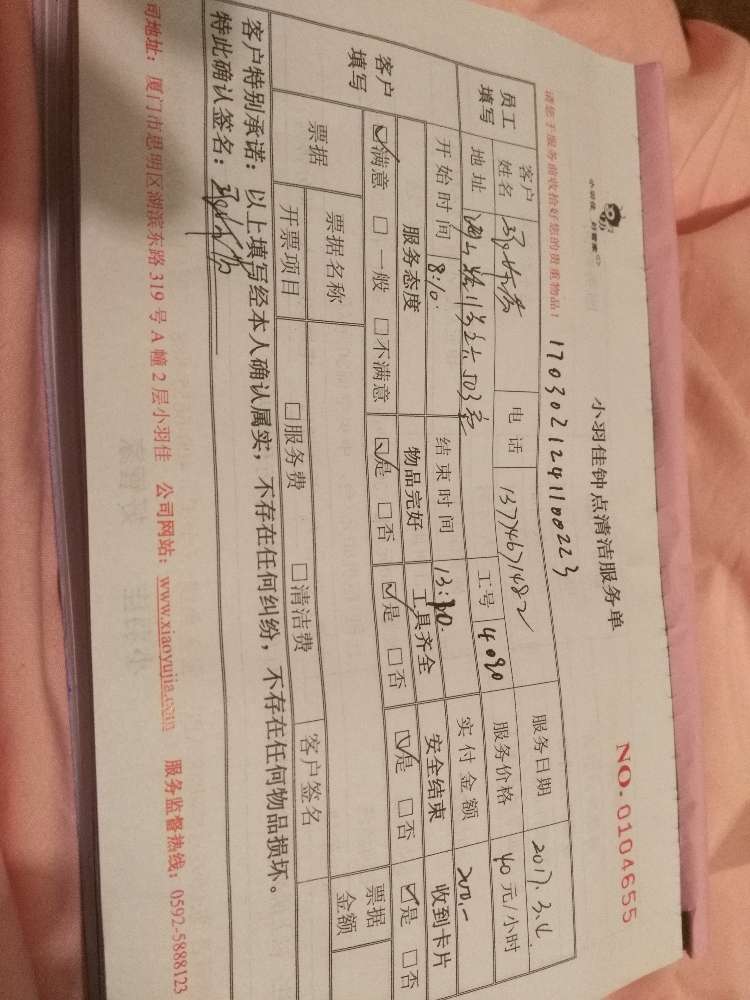 小羽佳 好管家
小羽佳钟点清洁服务单
NO. 0104655
170302124110022３
请您于服务前收拾好您的贵重物品！
员工填写
客户姓名
电话 13774671482
服务日期 2017.3.4
地址
工号 4090
服务价格 40元/小时
开始时间 8:10.
结束时间 13:30.
实付金额 200.-
客户填写
服务态度 物品完好 工具齐全 安全结束 收到卡片
☑满意 □一般 □不满意 ☑是 □否 ☑是 □否 ☑是 □否 ☑是 □否
票据 票据名称 票据金额
开票项目 □服务费 □清洁费 客户签名
客户特别承诺：以上填写经本人确认属实，不存在任何纠纷，不存在任何物品损坏。
特此确认签名：
司地址：厦门市思明区湖滨东路 319 号 A 幢 2 层小羽佳 公司网站：www.xiaoyujia.com 服务监督热线：0592-5888123